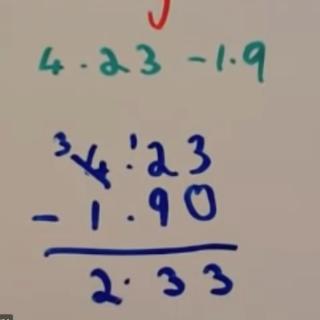 4.23 - 1.9
3 4.¹23
- 1.90
2.33